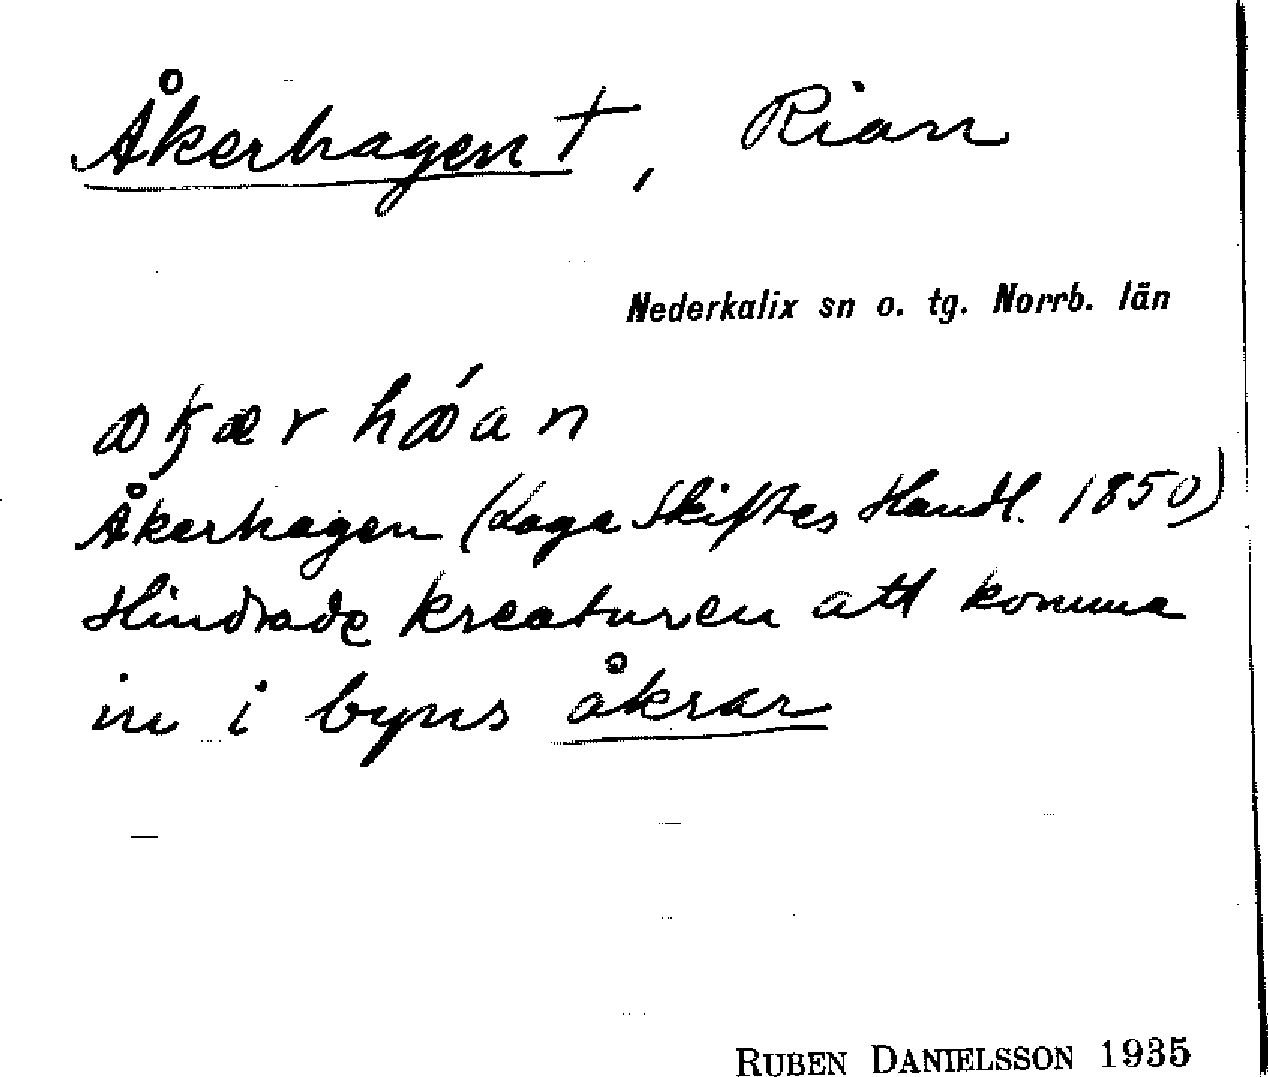 Åkerhagen †, Rian
Nederkalix sn o. tg. Norrb. län
Åkerhagen (Laga Skiftes Handl. 1850)
Hindrade kreaturen att komma
in i byns åkrar
RUBEN DANIELSSON 1935